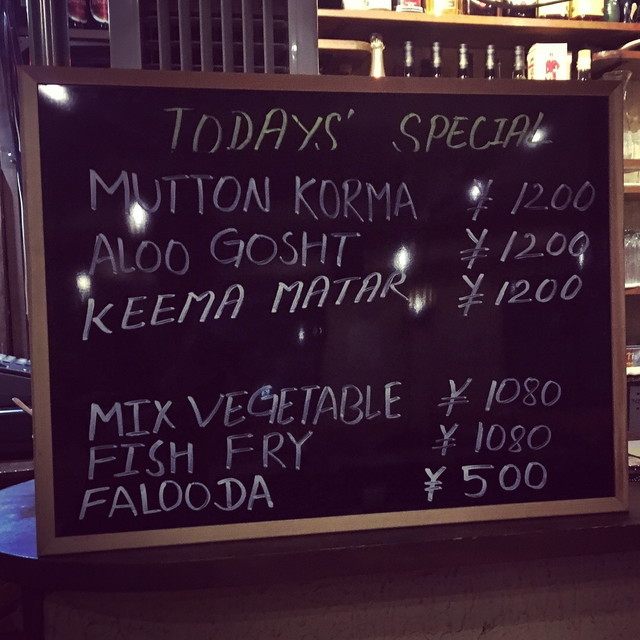 TODAYS' SPECIAL
MUTTON KORMA ¥ 1200
ALOO GOSHT ¥ 1200
KEEMA MATAR ¥ 1200
MIX VEGETABLE ¥ 1080
FISH FRY ¥ 1080
FALOODA ¥ 500